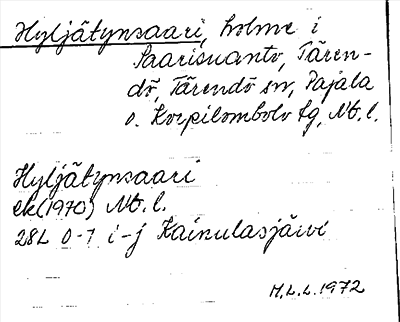 Hyljätynsaari, holme i
Saarisuanto, Tären-
dö, Tärendö sn, Pajala
o. Korpilombolo tg, Nb. l.
Hyljätynsaari
ek (1970) Nb. l.
28L 0-1 i-j Kainulasjärvi
H.L.L. 1972